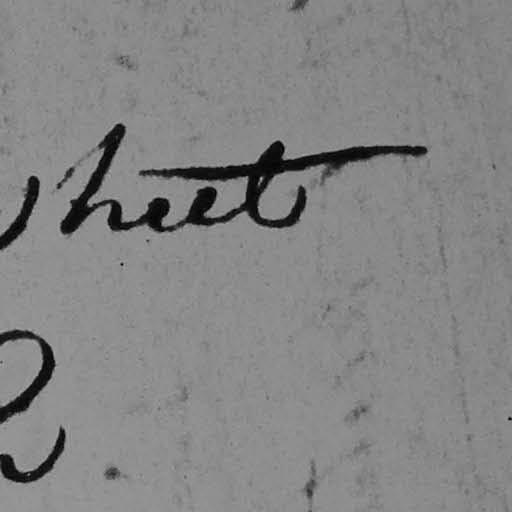 Sheet
2.